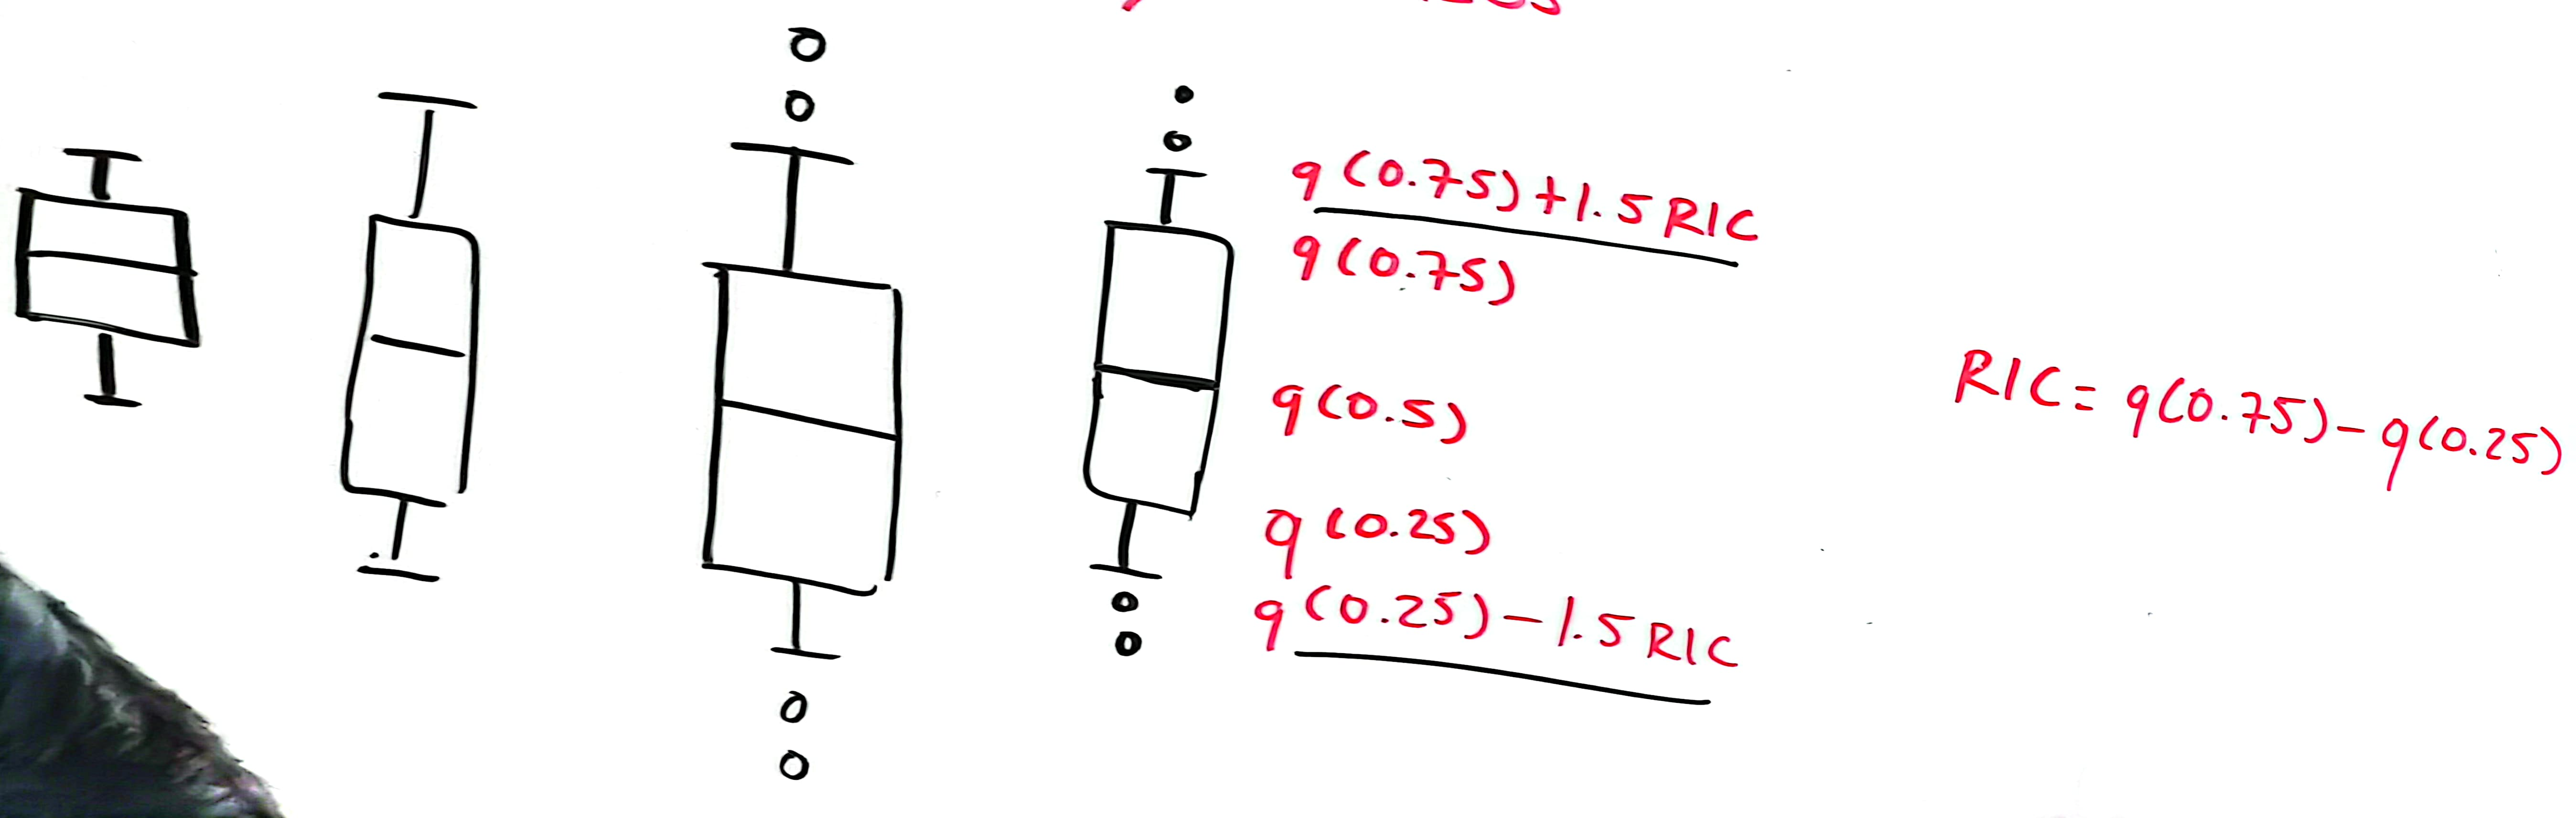 q(0.75)+1.5 RIC
q(0.75)
q(0.5)
q(0.25)
q(0.25)-1.5 RIC
RIC= q(0.75)-q(0.25)